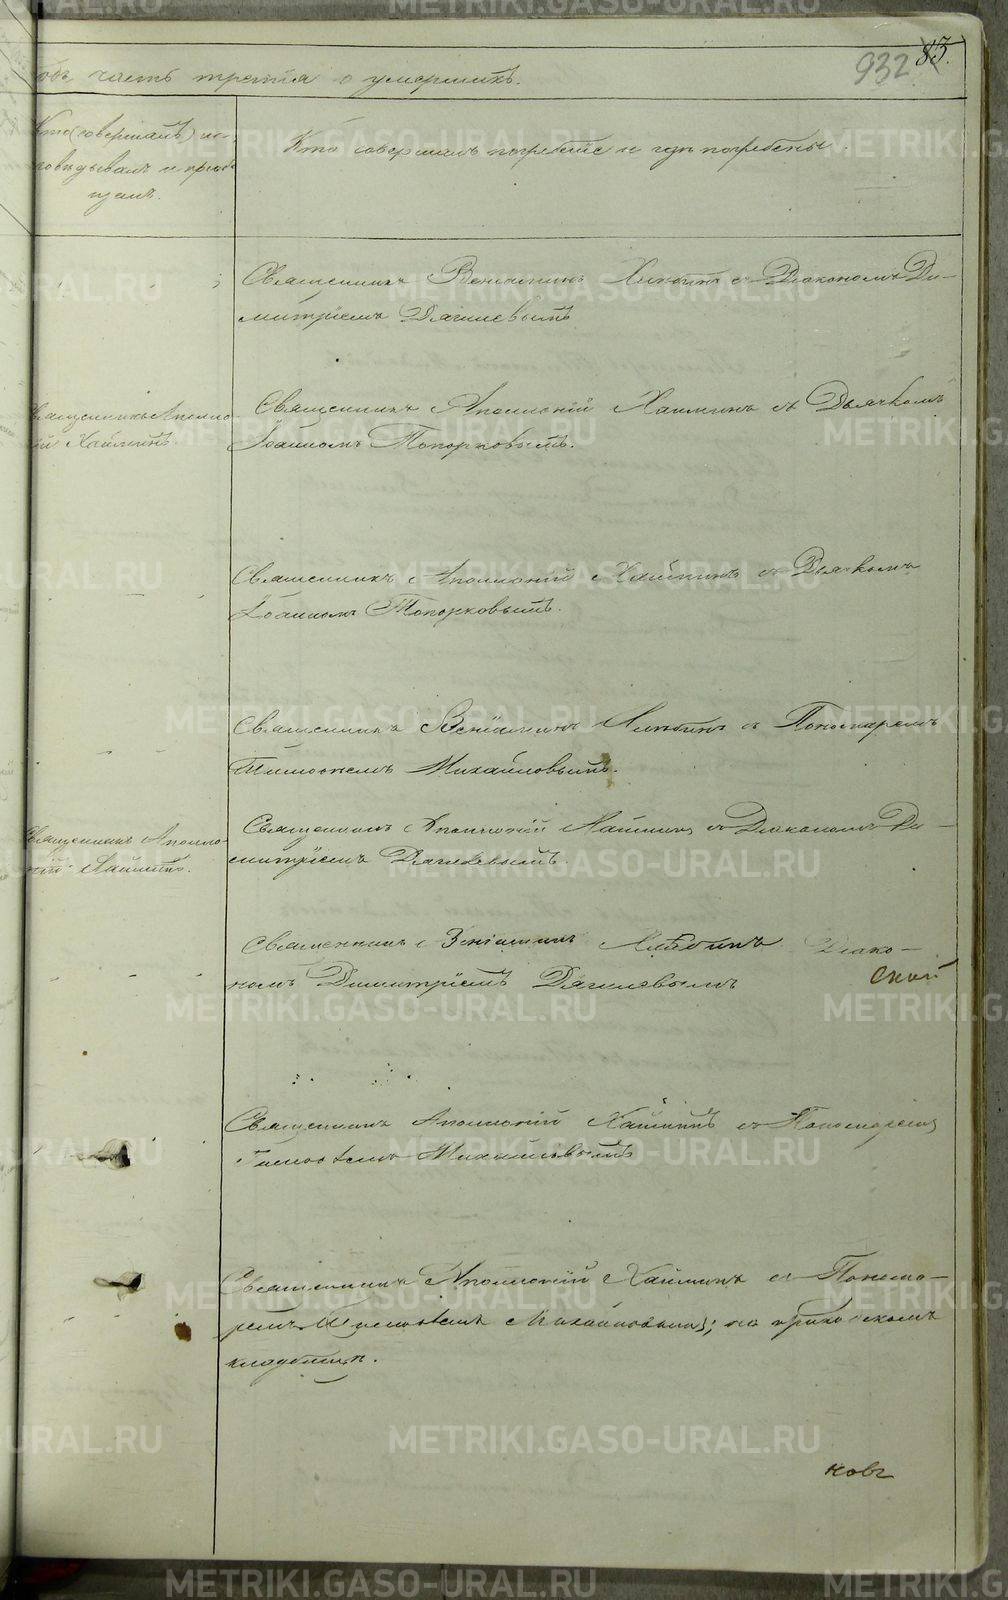 932 83.
часть третія о умершихъ.
Кто (совершалъ) ис-
повѣдывалъ и пріоб-
щалъ.
Кто совершалъ погребеніе и гдѣ погребены.
Священникъ Веніаминъ съ Діакономъ Ди-
митріемъ Дягилевымъ
Священникъ Аполло-
ній Хаймин
Священникъ Аполлоній Хайминъ съ Дьячкомъ
Іоанномъ Топорковымъ.
Священникъ Аполлоній Хайминъ съ Дьячкомъ
Іоанномъ Топорковымъ.
Священникъ Веніаминъ съ Пономаремъ
Тимофеемъ Михайловымъ.
Священникъ Аполло-
ній Хайминъ.
Священникъ Аполлоній Хайминъ съ Діакономъ Ди-
митріемъ Дягилевымъ.
Священникъ Веніаминъ Діако-
номъ Димитріемъ Дягилевымъ
Скай
Священникъ Аполлоній Хайминъ съ Пономаремъ
Тимофеемъ Михайловымъ
Священникъ Аполлоній Хайминъ съ Понома-
ремъ Тимофеемъ Михайловымъ; на приходскомъ
кладбищѣ.
ковъ
METRIKI.GASO-URAL.RU